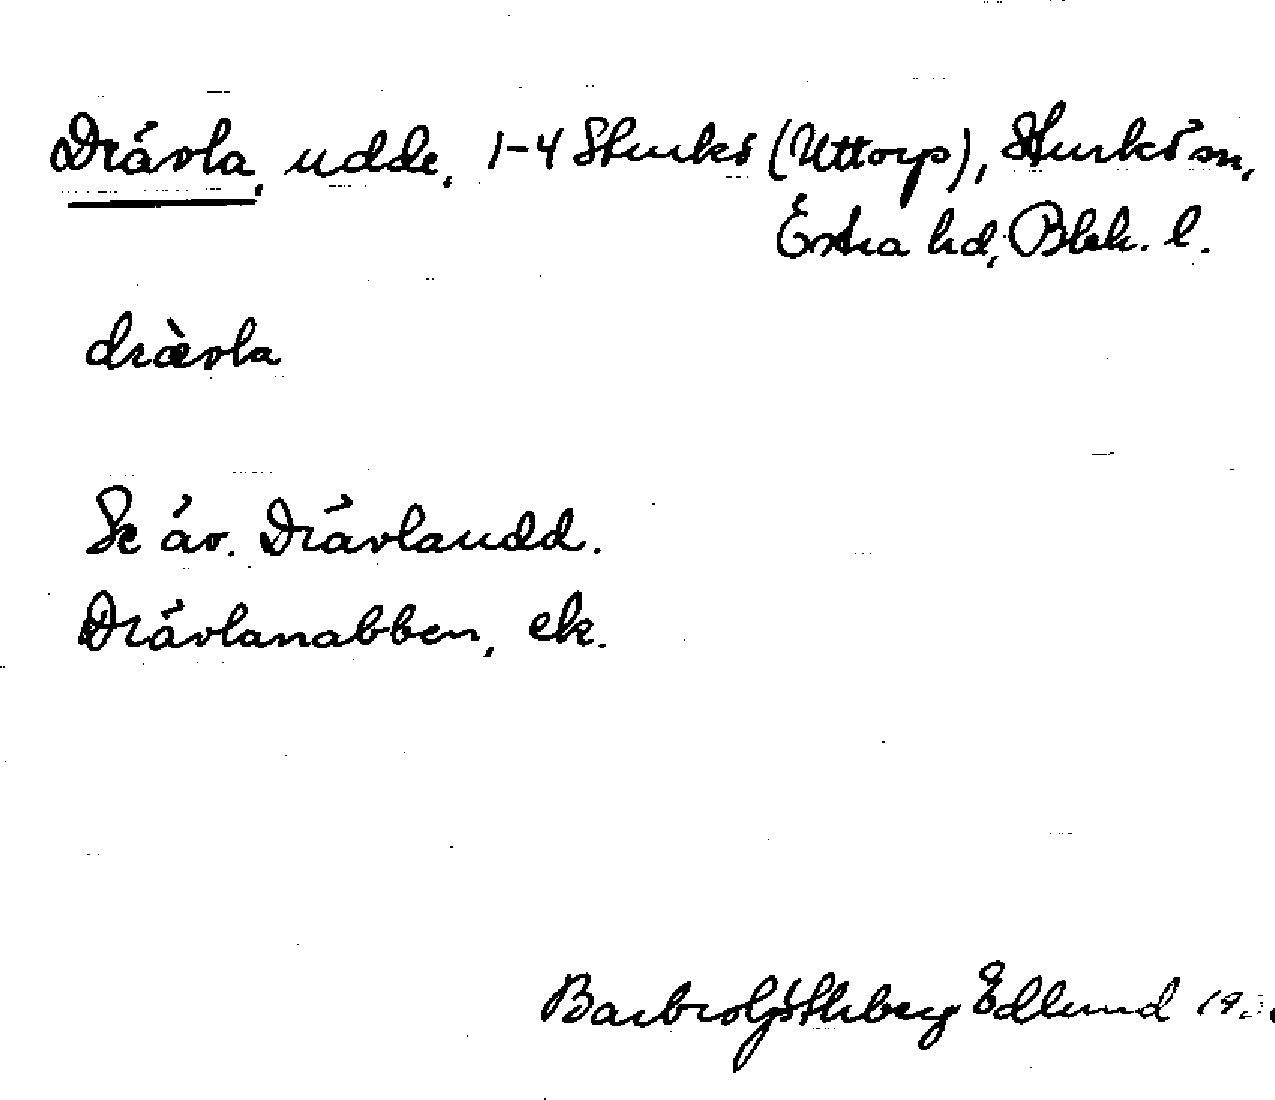 Drävla, udde, 1-4 Sturkö (Uttorp), Sturkö sn,
Östra hd, Blek. l.
dræ̀vla
Se äv. Drävlaudd.
Drävlanabben, ek.
Barbro Götheberg Edlund